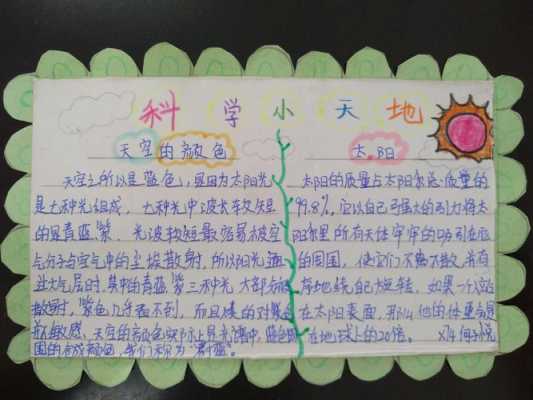 科学小天地
天空的颜色
天空之所以是蓝色,是因为太阳光
是七种光组成,七种光中波长较短
的是青蓝紫,光波较短最容易被空
气分子与空气中的尘埃散射,所以阳光
过大气层时,其中的青蓝紫三种光大部分
散射,紫色几乎看不到,而且
敏感,天空的颜色实际上是光谱中蓝色
的合成颜色,我们称为"蔚蓝"。
太阳
太阳的质量占太阳系总质量的
99.8%,它以自己强大的引力将太
阳系里所有天体牢牢的吸引在
的周围,使它们不离不散,
地绕自己旋转,如果一个人站
在太阳表面,那么他的体重会是
在地球上的20倍。